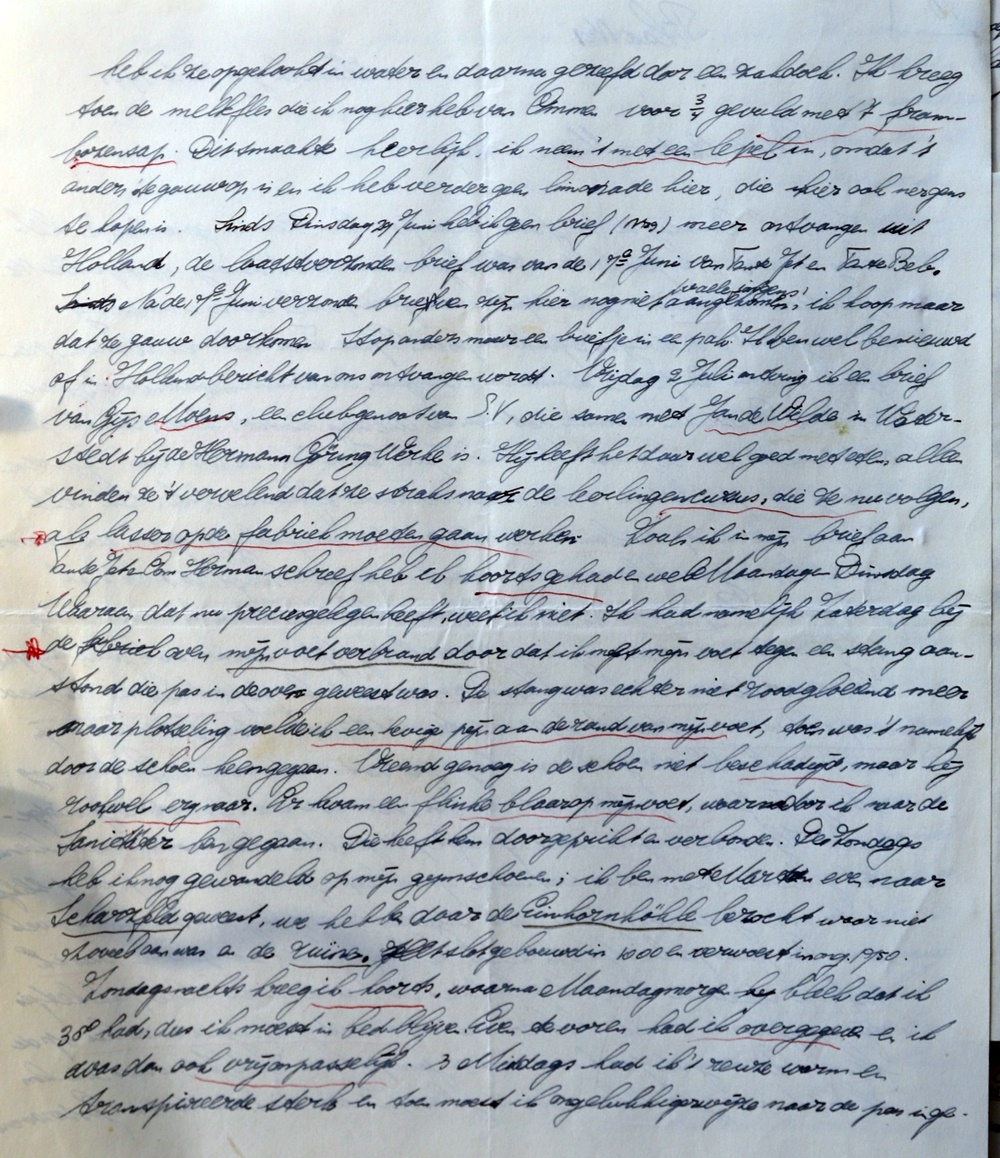 heb ik ze opgekookt in water en daarna gezeefd door een zakdoek. Ik kreeg
toen de melkfles die ik nog hier heb van Ommen voor 3/4 gevuld met 't fram-
bozensap. Dit smaakte heerlijk, ik neem 't met een lepel in, omdat 't
anders te gauw op is en ik heb verder geen limonade hier, die hier ook nergens
te kopen is. Sinds Dinsdag 29 Juni heb ik geen brief meer ontvangen uit
Holland, de laatstverzonden brief was van de 17e Juni van Tante Jet en Tante Beb.
Na de 17e Juni verzonden brieven zijn hier nog niet aangekomen, ik hoop maar
dat ze gauw doorkomen Stop anders maar een briefje in een pak. Ik ben wel benieuwd
of in Holland bericht van ons ontvangen wordt. Vrijdag 2 Juli ontving ik een brief
van Gijs Moens, een clubgenoot van S.V, die samen met Jan de Wilde in Water-
stedt bij de Hermann Göring Werke is. Hij heeft het daar wel goed met eten, alleen
vinden ze 't vervelend dat ze straks naar de leerlingencursus, die ze nu volgen,
als lasser op de fabriek moeten gaan werken. Zoals ik in mijn brief aan
Tante Jet en Oom Herman schreef heb ik koorts gehad en wel Maandag en Dinsdag
Waaraan dat nu precies gelegen heeft, weet ik niet. Ik had namelijk Zaterdag bij
de fabriek even mijn voet verbrand doordat ik met mijn voet tegen een stang aan-
stond die pas in de oven geweest was. De stang was echter niet roodgloeiend meer
maar plotseling voelde ik een hevige pijn aan de rand van mijn voet, toen was 't namelijk
door de schoen heengegaan. Vreemd genoeg is de schoen niet beschadigd, maar hij
rook wel erg naar. Er kwam een flinke blaar op mijn voet, waarvoor ik naar de
Sanitäter ben gegaan. Die heeft hem doorgeprikt en verbonden. Des Zondags
heb ik nog gewandeld op mijn gymschoenen; ik ben met Marten even naar
Scharzfeld geweest, we hebben daar de Einhornhöhle bezocht waar niet
zoveel aan was en de ruïne, slot gebouwd in 1000 en verwoest in
Zondagsnachts kreeg ik koorts, waarna Maandagmorgen bleek dat ik
38° had, dus ik moest in bed blijven. Even tevoren had ik overgegeven en ik
was dan ook vrij onpasselijk. 's Middags had ik 't reuze warm en
transpireerde sterk en toen moest ik ongelukkigerwijze naar de